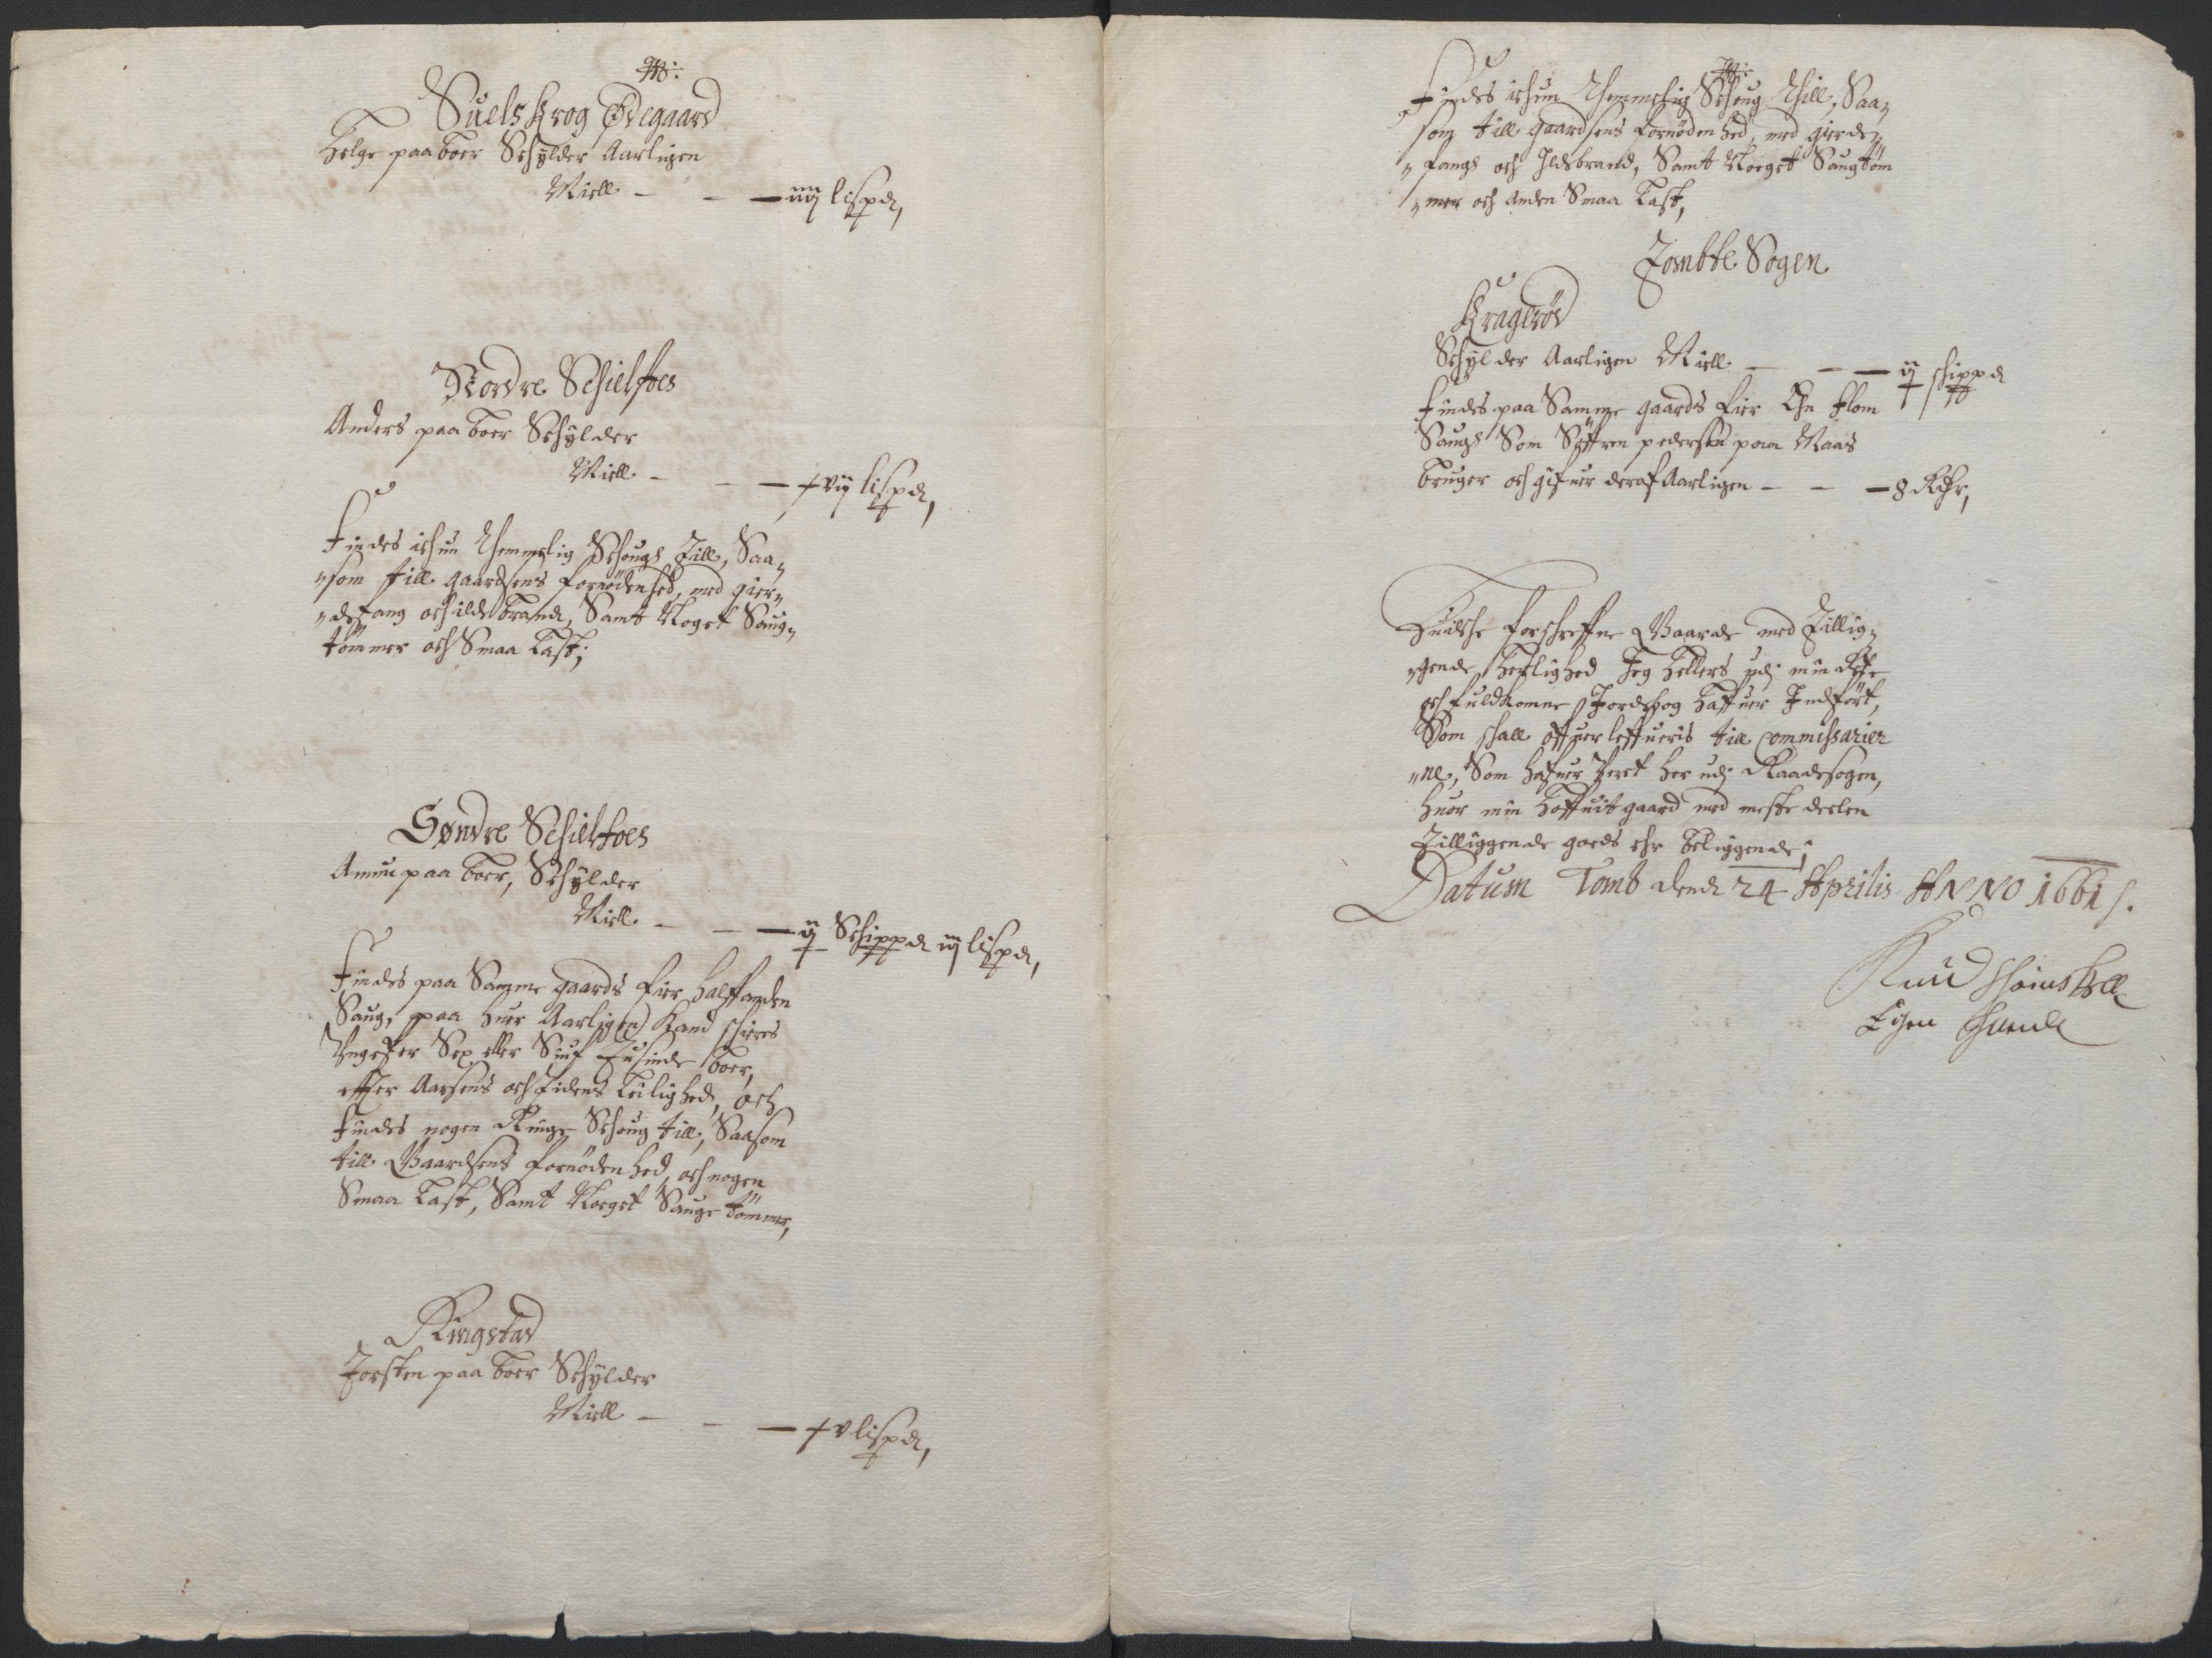 Suelskrog Ødegaard
Helge paaboer Schylder Aarligen
Miell - - - iiij lispd,
Nordre Schieltoes
Anders paaboer Schylder
Miell - - - xvij lispd,
Findes ichun Themmelig Schougs Till, Saa„
„som till gaardsens fornødenhed, med gier„
„defang och ildebrand, Samt Noget Saug„
tømmer och Smaa Last;
Søndre Schieltoes
Amun paaboer, Schylder
Miell - - - ij Schippd iij lispd,
Findes paa Samme gaards Eier halffanden
Saug, paa huer Aarligen Kand schieres
Vngefer Sex eller Siuf Tusinde boer,
effter Aarsens och tidens Leilighed, och
findes nogen Ringe Schoug till, Saasom
till Gaardsens fornødenhed, och nogen
Smaa Last, Samt Noeget Sauge tømmer,
Ringstad
Torsten paaboer Schylder
Miell - - - xv lispd,
Findes ichun Themmelig Schoug Thill, Saa„
som till gaardsens fornødenhed, med gierde„
„fangs och Ildebrand, Samt Noeget Saugtøm
„mer och anden Smaa Last,
Tombte Sogen
Kragerød
Schylder Aarligen Miell - - - ij schippd
Findes paa Samme gaards Eier Ehn flom
Saugs Som Søffren pedersen paa Maas
bruger och gifuer deraf Aarligen - - - 8 Rdr,
Huilche forschreffne Gaarde med Tillig„
„gende Herlighed Jeg Hellers udj min Rette
och fuldkomne Jordebog haffuer Indført,
Som schall offuerleffueris till Commissarier
„ne, Som hafuer Veret her udj Raadesogen,
huor min hoffuitgaard med meste deelen
Tilliggende goeds ehr beliggende;
Datum Tomb dend 24 Aprilis ANNO 1661.
Knud
Egen Haand